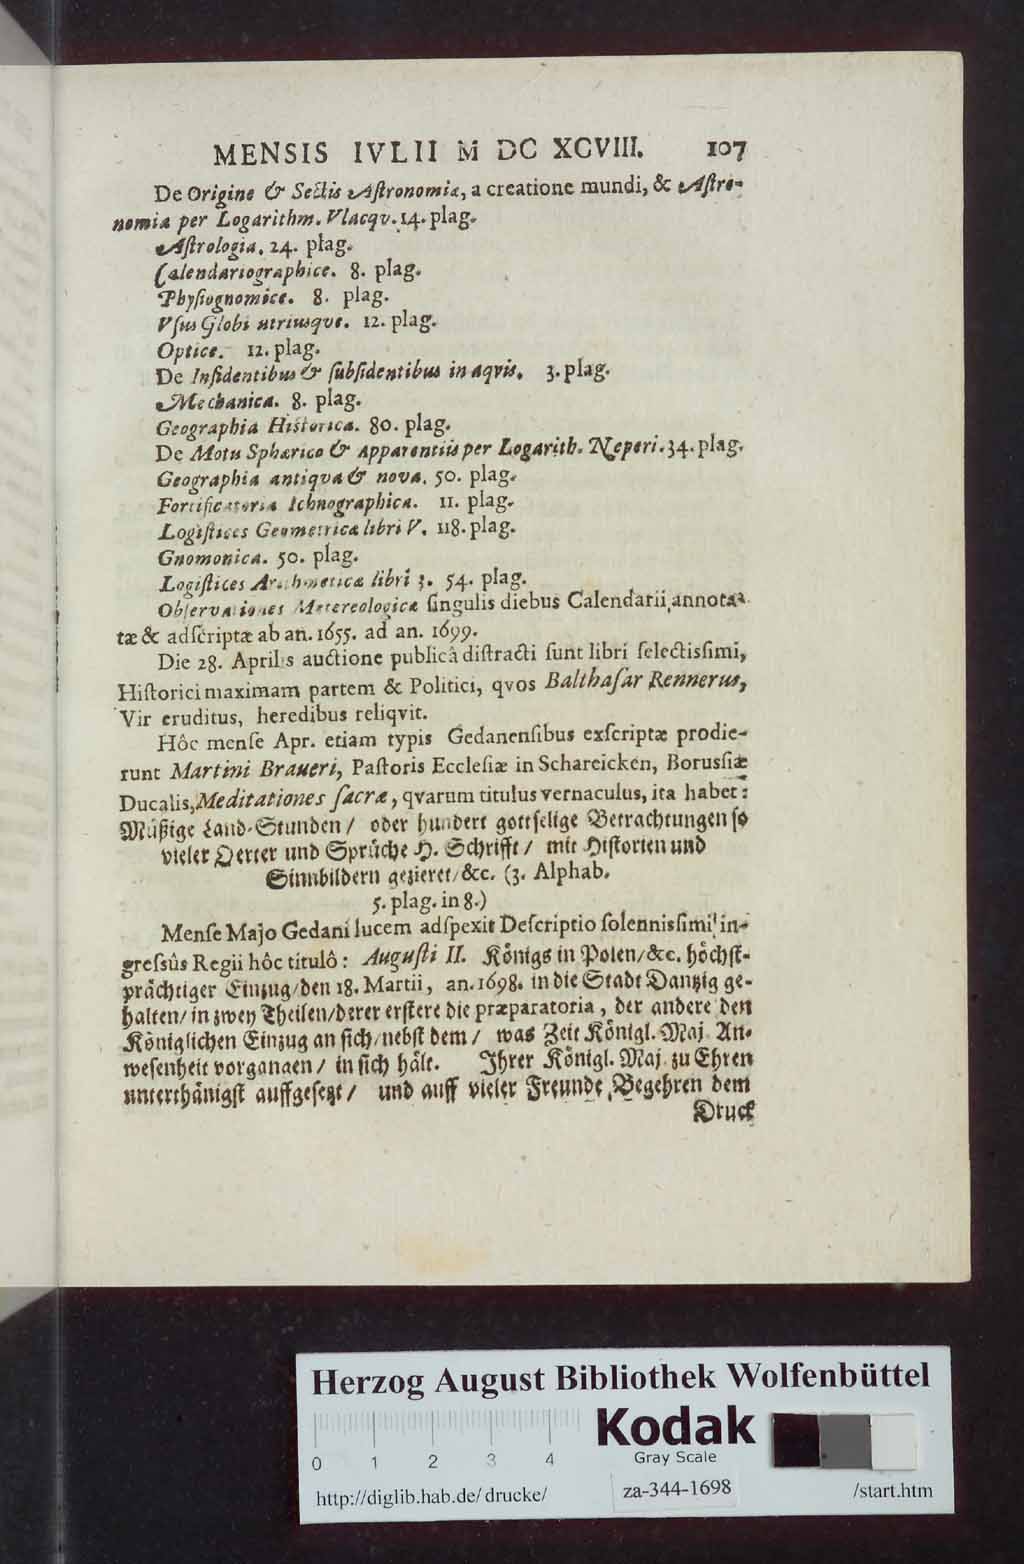 MENSIS IVLII M DC XCVIII. 107
De Origine & Sectis Astronomiæ, a creatione mundi, & Astro-
nomia per Logarithm. Vlacqv. 14. plag.
Astrologia. 24. plag.
Calendariographice. 8. plag.
Physiognomice. 8. plag.
Vsus Globi utriusqve. 12. plag.
Optice. 12. plag.
De Insidentibus & subsidentibus in aqvis. 3. plag.
Mechanica. 8. plag.
Geographia Historica. 80. plag.
De Motu Sphærico & apparentiis per Logarith. Neperi. 34. plag.
Geographia antiqva & nova. 50. plag.
Fortificatoria Ichnographica. 11. plag.
Logistices Geometricæ libri V. 118. plag.
Gnomonica. 50. plag.
Logistices Arithmeticæ libri 3. 54. plag.
Observationes Metereologicæ singulis diebus Calendarii annota-
tæ & adscriptæ ab an. 1655. ad an. 1699.
Die 28. Aprilis auctione publicâ distracti sunt libri selectissimi,
Historici maximam partem & Politici, qvos Balthasar Rennerus,
Vir eruditus, heredibus reliqvit.
Hôc mense Apr. etiam typis Gedanensibus exscriptæ prodie-
runt Martini Braueri, Pastoris Ecclesiæ in Schareicken, Borussiæ
Ducalis, Meditationes sacræ, qvarum titulus vernaculus, ita habet:
Müßige Land-Stunden / oder hundert gottselige Betrachtungen so
vieler Oerter und Sprüche H. Schrifft / mit Historien und
Sinnbildern gezieret / &c. (3. Alphab.
5. plag. in 8.)
Mense Majo Gedani lucem adspexit Descriptio solennissimi in-
gressûs Regii hôc titulô: Augusti II. Königs in Polen / &c. höchst-
prächtiger Einzug / den 18. Martii, an. 1698. in die Stadt Dantzig ge-
halten / in zwey Theilen / derer erstere die præparatoria, der andere den
Königlichen Einzug an sich / nebst dem / was Zeit Königl. Maj. An-
wesenheit vorgangen / in sich hält. Ihrer Königl. Maj. zu Ehren
unterthänigst auffgesetzt / und auff vieler Freunde Begehren dem
Druck
Herzog August Bibliothek Wolfenbüttel
Kodak
Gray Scale
0 1 2 3 4
http://diglib.hab.de/drucke/ za-344-1698 /start.htm